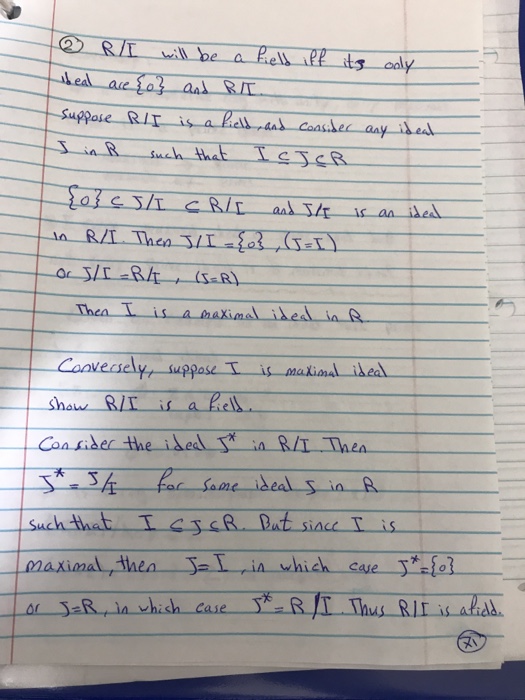 ② R/I will be a field iff its only
ideal are {0} and R/I.
Suppose R/I is a field, and consider any ideal
J in R such that I ⊆ J ⊆ R
{0} ⊆ J/I ⊆ R/I and J/I is an ideal
in R/I. Then J/I = {0}, (J=I)
or J/I = R/I, (J=R)
Then I is a maximal ideal in R
Conversely, suppose I is maximal ideal
show R/I is a field.
Consider the ideal J* in R/I. Then
J* = J/I for some ideal J in R
such that I ⊆ J ⊆ R. But since I is
maximal, then J=I, in which case J*={0}
or J=R, in which case J*=R/I. Thus R/I is a field.